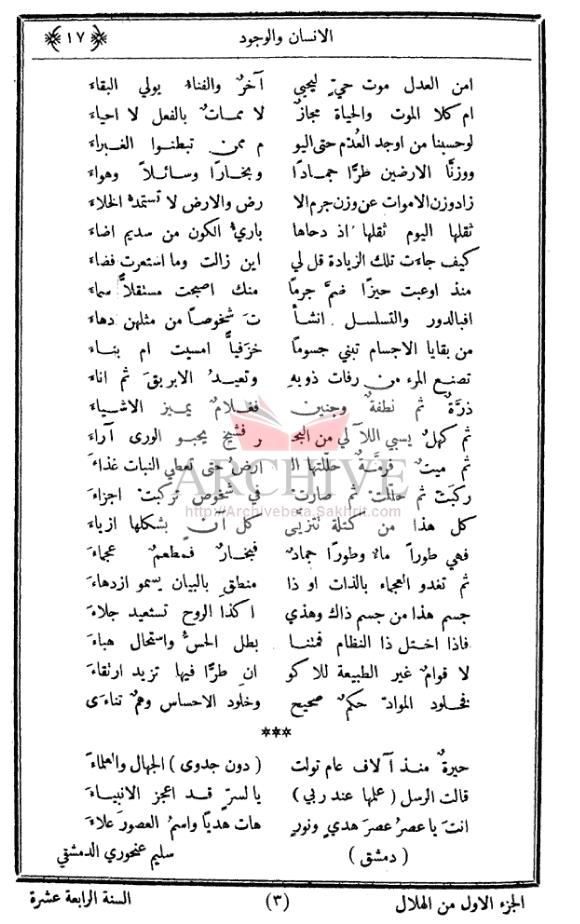 الانسان والوجود
﴿ ١٧ ﴾
امن العدل موت حيٍّ ليحيى آخرٌ والفناء يولي البقاءَ
ام كلا الموت والحياة مجازٌ لا مماتٌ بالفعل لا احياءَ
لوحسبنا من اوجد العُدْم حتى اليو م ممن تبطنوا الغبراءَ
ووزنَّا الارضين طرًّا جمادًا وبخارًا وسائلاً وهواءَ
زادوزن الاموات عن وزن جرم الا رض والارض لا تستمدُّ الخلاءَ
ثقلها اليوم ثقلها اذ دحاها باريءُ الكون من سديم اضاءَ
كيف جاءَت تلك الزيادة قل لي اين زالت وما استعرت فضاءَ
منذ اوعبت حيزًا ضمَّ جرمًا منك اصبحت مستقلاًّ سماءَ
افبالدور والتسلسل انشأ تَ شخوصًا من مثلهن دهاءَ
من بقايا الاجسام تبني جسومًا خزَفيًّا امسيت ام بناءَ
تصنع المرء من رفات ذويهِ وتعيدُ الابريقَ ثم اناءَ
ذرَّةٌ ثم نطفةٌ وجنين فغلامٌ يميز الاشياءَ
ثم كهلٌ يسبي اللآلي من البحـ ر فشيخ يحبو الورى آراءَ
ثم ميتٌ فرِمَّةٌ حللتها الـ ارضُ حتى تعطي النبات غذاءَ
ركبَت ثم حللت ثم صارت في شخوص تركبت اجزاءَ
كل هذا من كتلة تتزيَّى كل آنٍ بشكلها ازياءَ
فهي طوراً ماءٌ وطورًا جمادٌ فبخارٌ فمطعمٌ عجماءَ
ثم تغدو العجماء بالذات او ذا منطقٍ بالبيان يسمو ازدهاءَ
جسم هذا من جسم ذاك وهذي اكذا الروح تستعيد جلاءَ
فاذا اختل ذا النظام فمتنا بطل الحسُّ واستحال هباءَ
لا قوامٌ غير الطبيعة للاكو انِ طرًّا فيها تزيد ارتقاءَ
فخلود الموادّ حكمٌ صحيح وخلود الاحساس وهمٌ تناءَى
***
حيرةٌ منذ آلاف عام تولت ( دون جدوى ) الجهال والعلماءَ
قالت الرسل ( علمها عند ربي ) يا لسرّ قد اعجز الانبياءَ
انتَ يا عصرُ عصرَ هديٍ ونورٍ هات هديًا واسمُ العصورَ علاءَ
( دمشق ) سليم عنحوري الدمشقي
الجزء الاول من الهلال (٣) السنة الرابعة عشرة
ARCHIVE
http://Archivebeta.Sakhrit.com